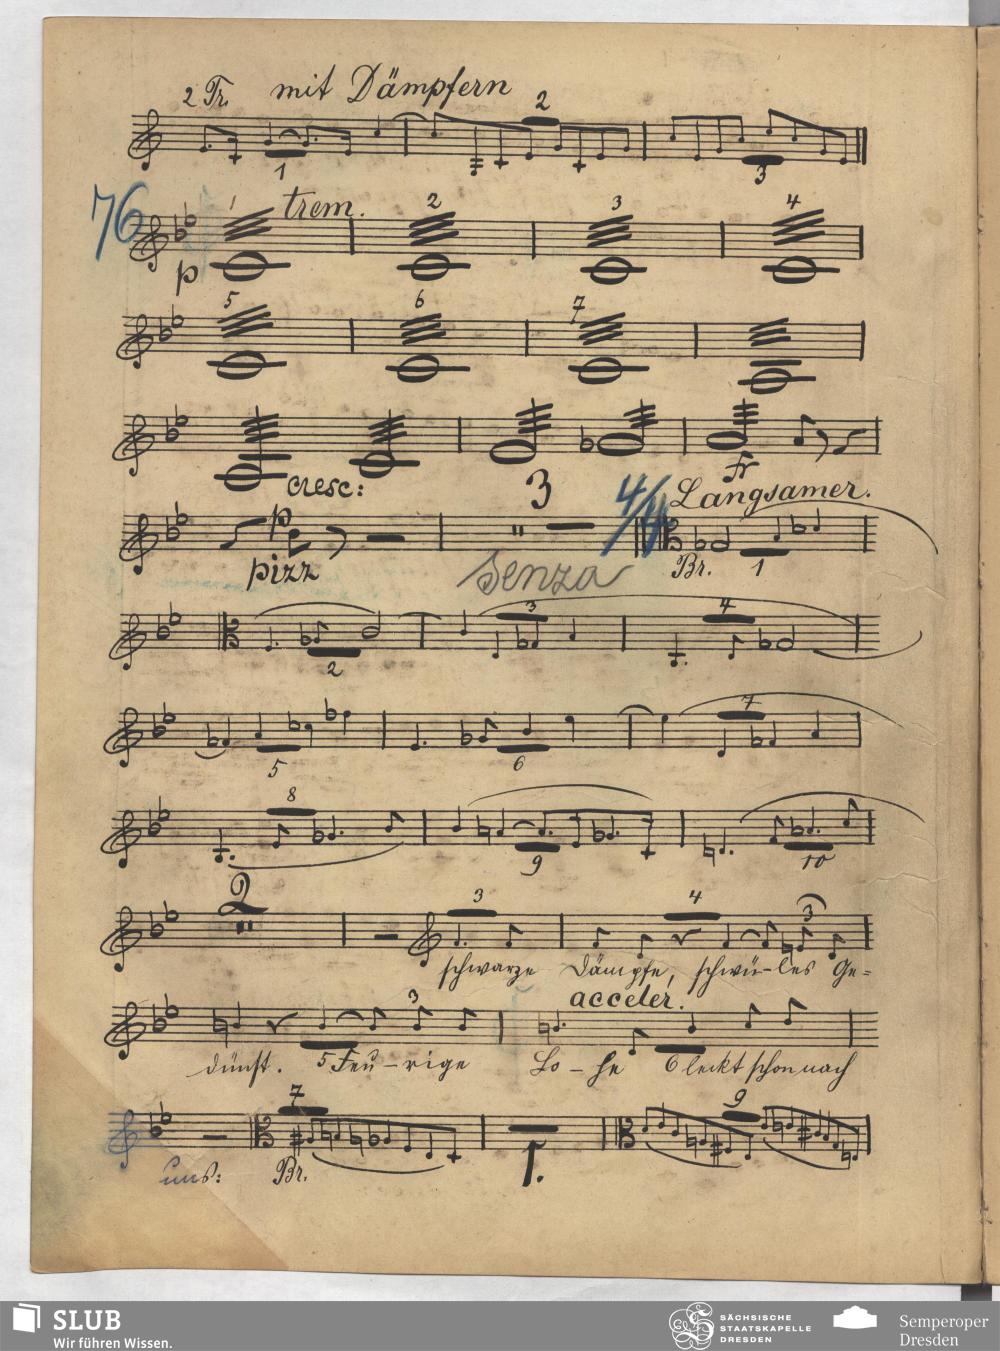 2 Tr. mit Dämpfern
2
1 3
76
1 trem. 2 3 4
p
5 6 7
cresc: fr
3 4/4 Langsamer.
p
pizz senza Br. 1
3 4
2
7
5 6
8
9 10
2 3 4 3
schwarze Dämpfe, schwü-les Ge=
acceler.
3
dünst. 5 Feu-rige Lo-he 6 leckt schon nach
7 9
uns: Br. 1.
SLUB
Wir führen Wissen.
SÄCHSISCHE
STAATSKAPELLE
DRESDEN
Semperoper
Dresden